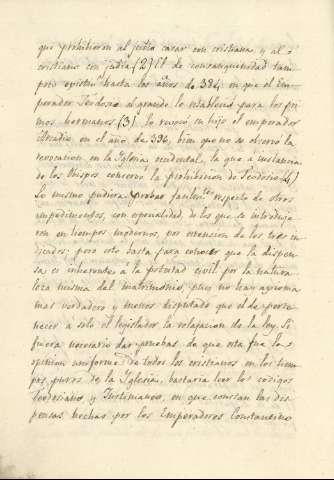 que prohibieron al judio casar con cristiana, y al
cristiano con judia (2) El de consanguinidad tam
poco existió hasta los años de 384, en que el Em-
perador Teodosio el grande lo estableció para los pri
mos hermanos (3). lo revocó su hijo el emperador
Arcadio en el año de 396, bien que no se observó la
revocacion en la Iglesia occidental, la que a instancia
de los Obispos conservó la prohibicion de Teodosio (4)
Lo mismo pudiera probar respecto de otros
impedimentos, con de los que se introduje
ron en tiempos modernos, por extension de los tres in
dicados; pero esto basta para conocer que la dispen
sa es inherente a la potestad civil por la natura
leza misma del matrimonio, pues no hay axioma
mas verdadero y menos disputado que el de perte
necer a solo el legislador la relajacion de la ley. Si
fuera necesario dar pruebas de que esta fue la
opinion uniforme de todos los cristianos en los tiem
pos puros de la Iglesia, bastaria leer los codigos
Teodosiano y Justinianeo, en que constan las dis
pensas hechas por los Emperadores Constantino